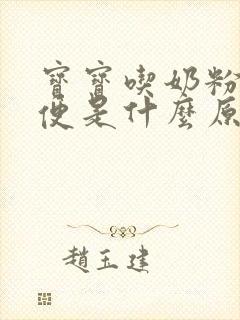 寶寶喫奶粉
便是什麼原
趙玉建